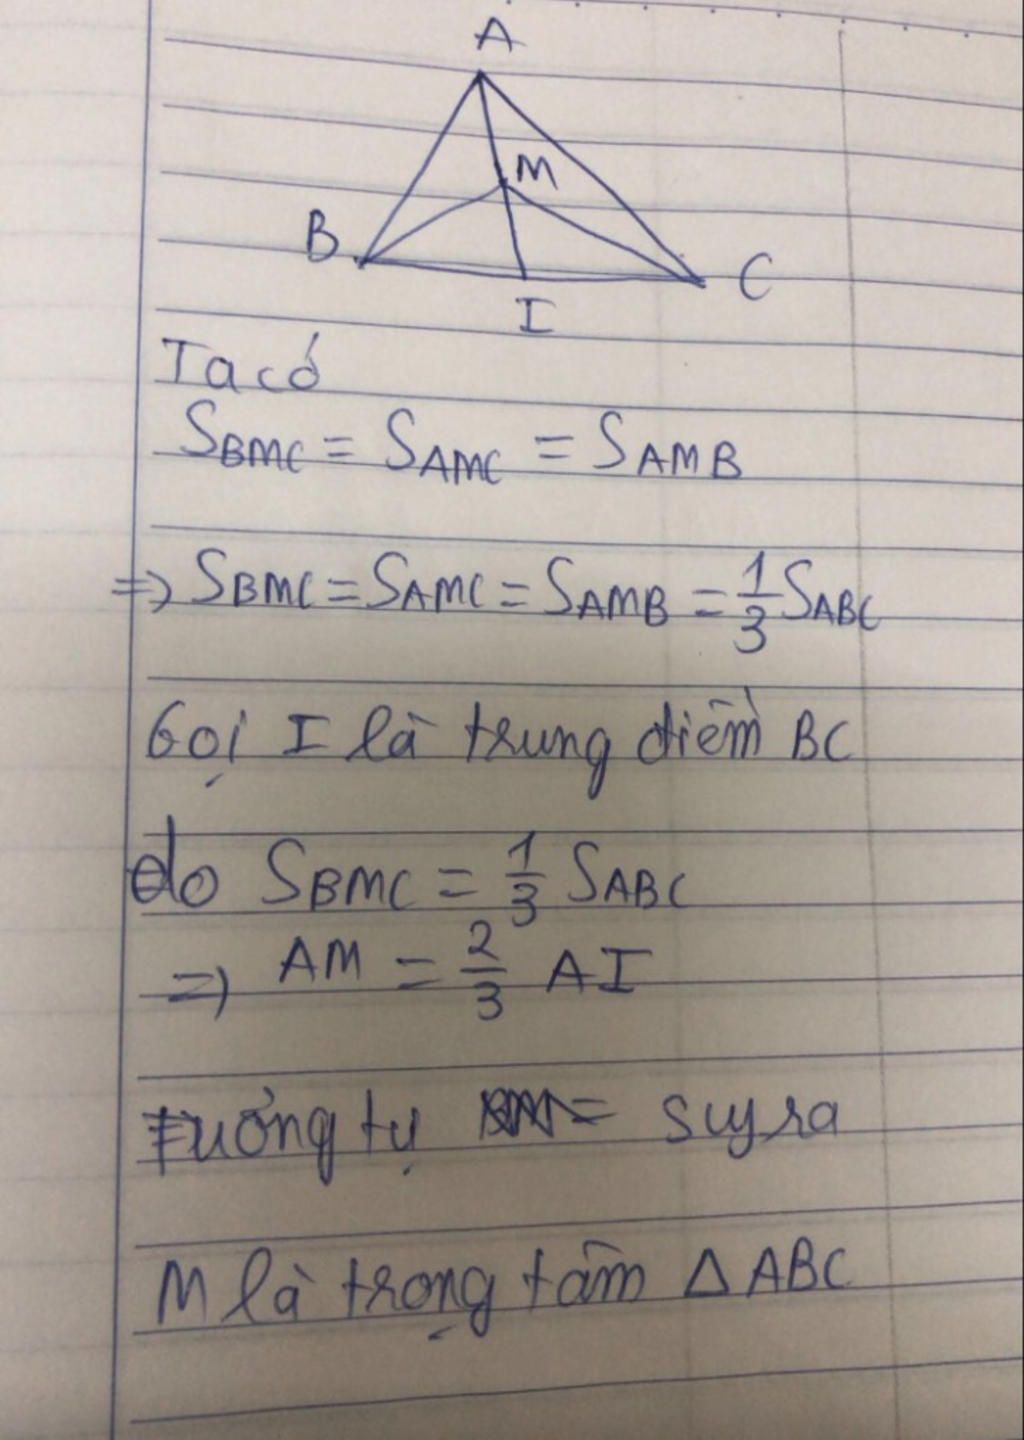 A
M
B
C
I
Ta có
S_BMC = S_AMC = S_AMB
=> S_BMC = S_AMC = S_AMB = 1/3 S_ABC
Gọi I là trung điểm BC
do S_BMC = 1/3 S_ABC
=> AM = 2/3 AI
Tưởng tự = suy ra
M là trọng tâm Δ ABC